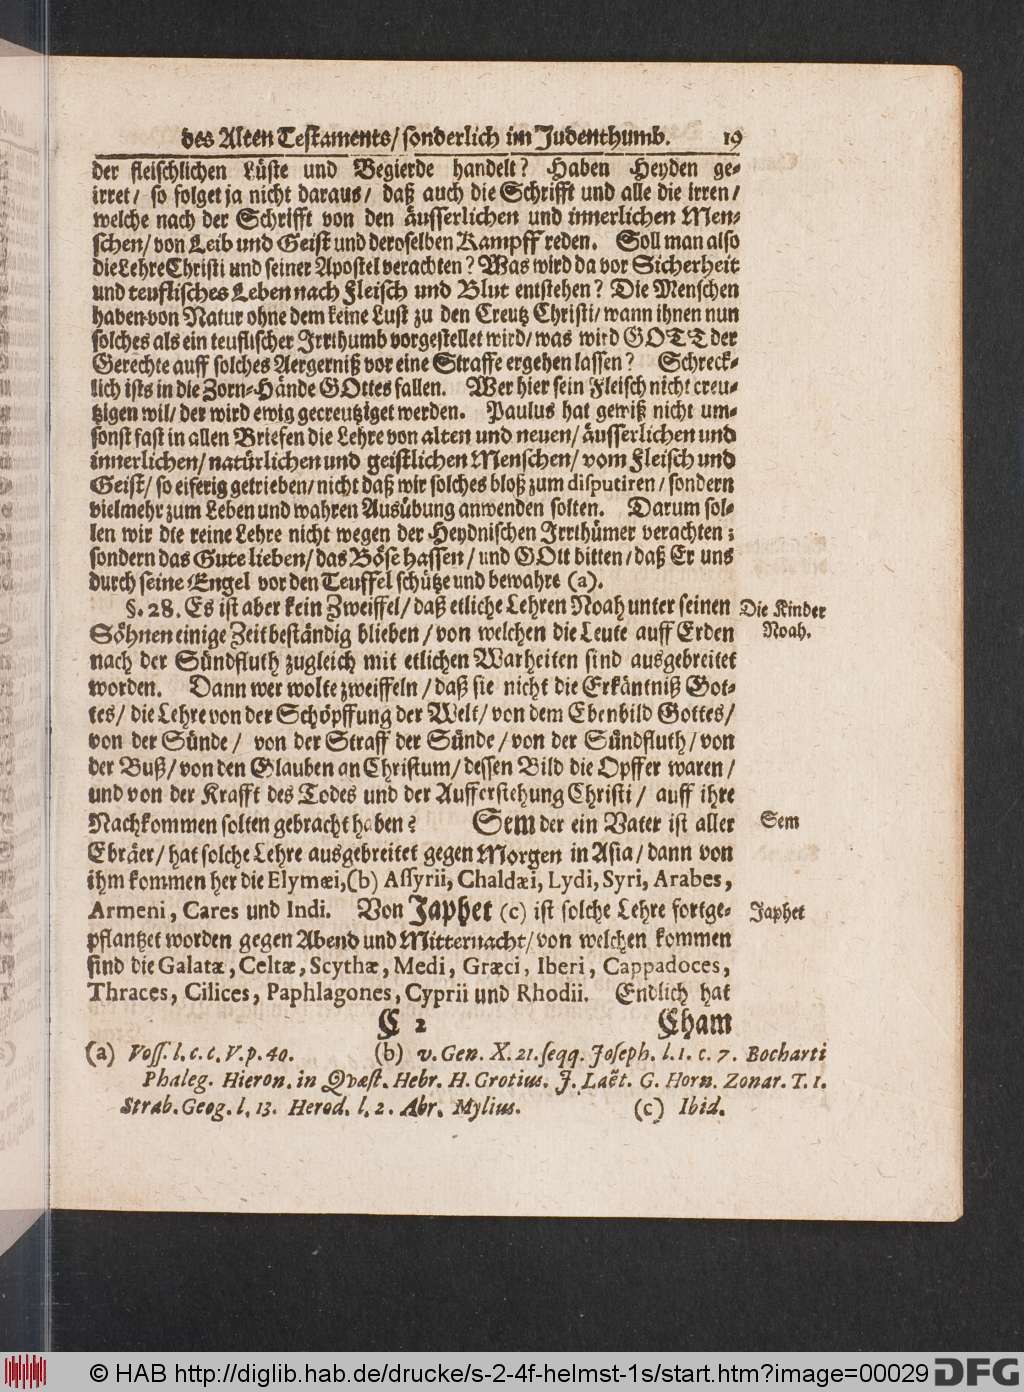 des Alten Testaments/ sonderlich im Judenthumb. 19
der fleischlichen Lüste und Begierde handelt? Haben Heyden ge-
irret/ so folget ja nicht daraus/ daß auch die Schrifft und alle die irren/
welche nach der Schrifft von den äusserlichen und innerlichen Men-
schen/ von Leib und Geist und deroselben Kampff reden. Soll man also
die Lehre Christi und seiner Apostel verachten? Was wird da vor Sicherheit
und teuflisches Leben nach Fleisch und Blut entstehen? Die Menschen
haben von Natur ohne dem keine Lust zu den Creutz Christi/ wann ihnen nun
solches als ein teuflischer Irrthumb vorgestellet wird/ was wird GOTT der
Gerechte auff solches Aergerniß vor eine Straffe ergehen lassen? Schreck-
lich ists in die Zorn-Hände GOttes fallen. Wer hier sein Fleisch nicht creu-
tzigen wil/ der wird ewig gecreutziget werden. Paulus hat gewiß nicht um-
sonst fast in allen Briefen die Lehre von alten und neuen/ äusserlichen und
innerlichen/ natürlichen und geistlichen Menschen/ vom Fleisch und
Geist/ so eiferig getrieben/ nicht daß wir solches bloß zum disputiren/ sondern
vielmehr zum Leben und wahren Ausübung anwenden solten. Darum sol-
len wir die reine Lehre nicht wegen der Heydnischen Irrthümer verachten;
sondern das Gute lieben/ das Böse hassen/ und GOtt bitten/ daß Er uns
durch seine Engel vor den Teuffel schütze und bewahre (a).
§. 28. Es ist aber kein Zweiffel/ daß etliche Lehren Noah unter seinen
Die Kinder
Noah.
Söhnen einige Zeit beständig blieben/ von welchen die Leute auff Erden
nach der Sündfluth zugleich mit etlichen Warheiten sind ausgebreitet
worden. Dann wer wolte zweiffeln/ daß sie nicht die Erkäntniß Got-
tes/ die Lehre von der Schöpffung der Welt/ von dem Ebenbild Gottes/
von der Sünde/ von der Straff der Sünde/ von der Sündfluth/ von
der Buß/ von den Glauben an Christum/ dessen Bild die Opffer waren/
und von der Krafft des Todes und der Aufferstehung Christi/ auff ihre
Nachkommen solten gebracht haben? Sem der ein Vater ist aller
Sem
Ebräer/ hat solche Lehre ausgebreitet gegen Morgen in Asia/ dann von
ihm kommen her die Elymæi, (b) Assyrii, Chaldæi, Lydi, Syri, Arabes,
Armeni, Cares und Indi. Von Japhet (c) ist solche Lehre fortge-
Japhet
pflantzet worden gegen Abend und Mitternacht/ von welchen kommen
sind die Galatæ, Celtæ, Scythæ, Medi, Græci, Iberi, Cappadoces,
Thraces, Cilices, Paphlagones, Cyprii und Rhodii. Endlich hat
C 2 Cham
(a) Voss. l. c. c. V. p. 40. (b) v. Gen. X. 21. seqq. Joseph. l. 1. c. 7. Bocharti
Phaleg. Hieron. in Qvæst. Hebr. H. Grotius. J. Laët. G. Horn. Zonar. T. 1.
Strab. Geog. l. 13. Herod. l. 2. Abr. Mylius. (c) Ibid.
© HAB http://diglib.hab.de/drucke/s-2-4f-helmst-1s/start.htm?image=00029 DFG